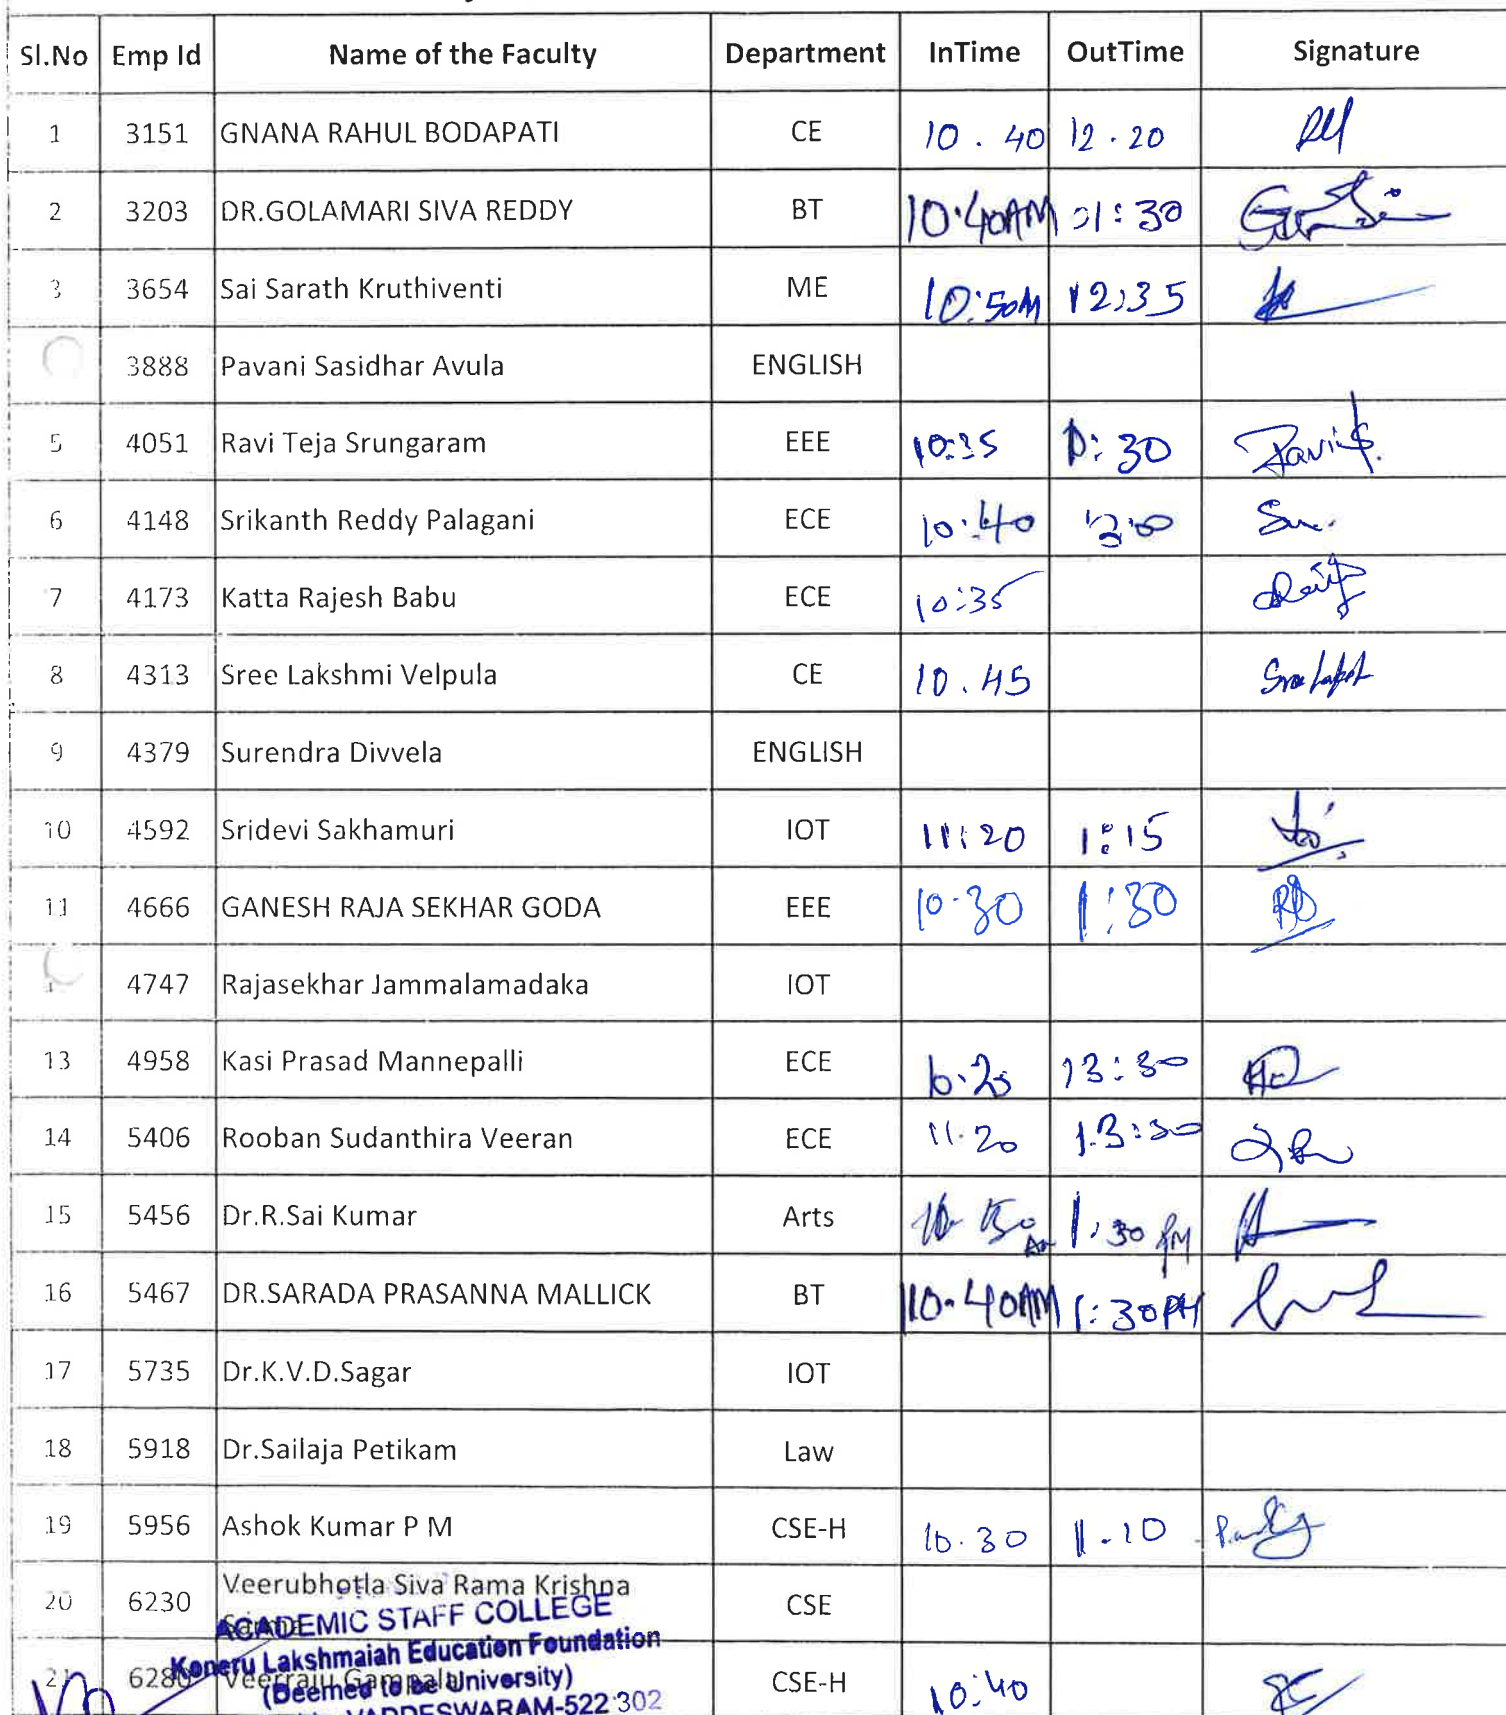 Sl.No Emp Id Name of the Faculty Department InTime OutTime Signature
1 3151 GNANA RAHUL BODAPATI CE 10.40 12.20
2 3203 DR.GOLAMARI SIVA REDDY BT 10.40AM 01:30
3 3654 Sai Sarath Kruthiventi ME 10:50AM 12:35
3888 Pavani Sasidhar Avula ENGLISH
5 4051 Ravi Teja Srungaram EEE 10:35
6 4148 Srikanth Reddy Palagani ECE 10:40
7 4173 Katta Rajesh Babu ECE 10:35
8 4313 Sree Lakshmi Velpula CE 10.45
9 4379 Surendra Divvela ENGLISH
10 4592 Sridevi Sakhamuri IOT 11:20 1:15
11 4666 GANESH RAJA SEKHAR GODA EEE 10.30 1:30
4747 Rajasekhar Jammalamadaka IOT
13 4958 Kasi Prasad Mannepalli ECE 13:30
14 5406 Rooban Sudanthira Veeran ECE 11.20 13:30
15 5456 Dr.R.Sai Kumar Arts 1:30 PM
16 5467 DR.SARADA PRASANNA MALLICK BT 10.40AM 1:30PM
17 5735 Dr.K.V.D.Sagar IOT
18 5918 Dr.Sailaja Petikam Law
19 5956 Ashok Kumar P M CSE-H 10.30 1.10
20 6230 Veerubhotla Siva Rama Krishna CSE
ACADEMIC STAFF COLLEGE
Koneru Lakshmaiah Education Foundation
21 6280 Veerraju Gampala CSE-H 10:40
(Deemed to be University)
VADDESWARAM-522 302